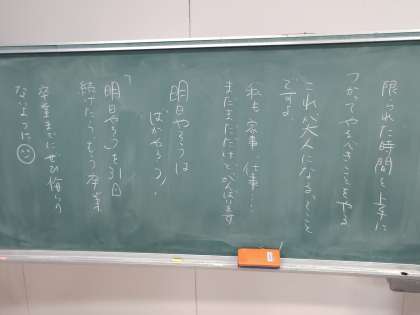 限られた時間を上手に
つかてやるべきことをやる
これが大人になるってこと
です。
私も家事、仕事…
まだまだだけどがんばります
明日やろうは
ばかやろう!
「明日やろう」を31日
続けたらもう卒業
卒業までにぜひ悔いの
ないように